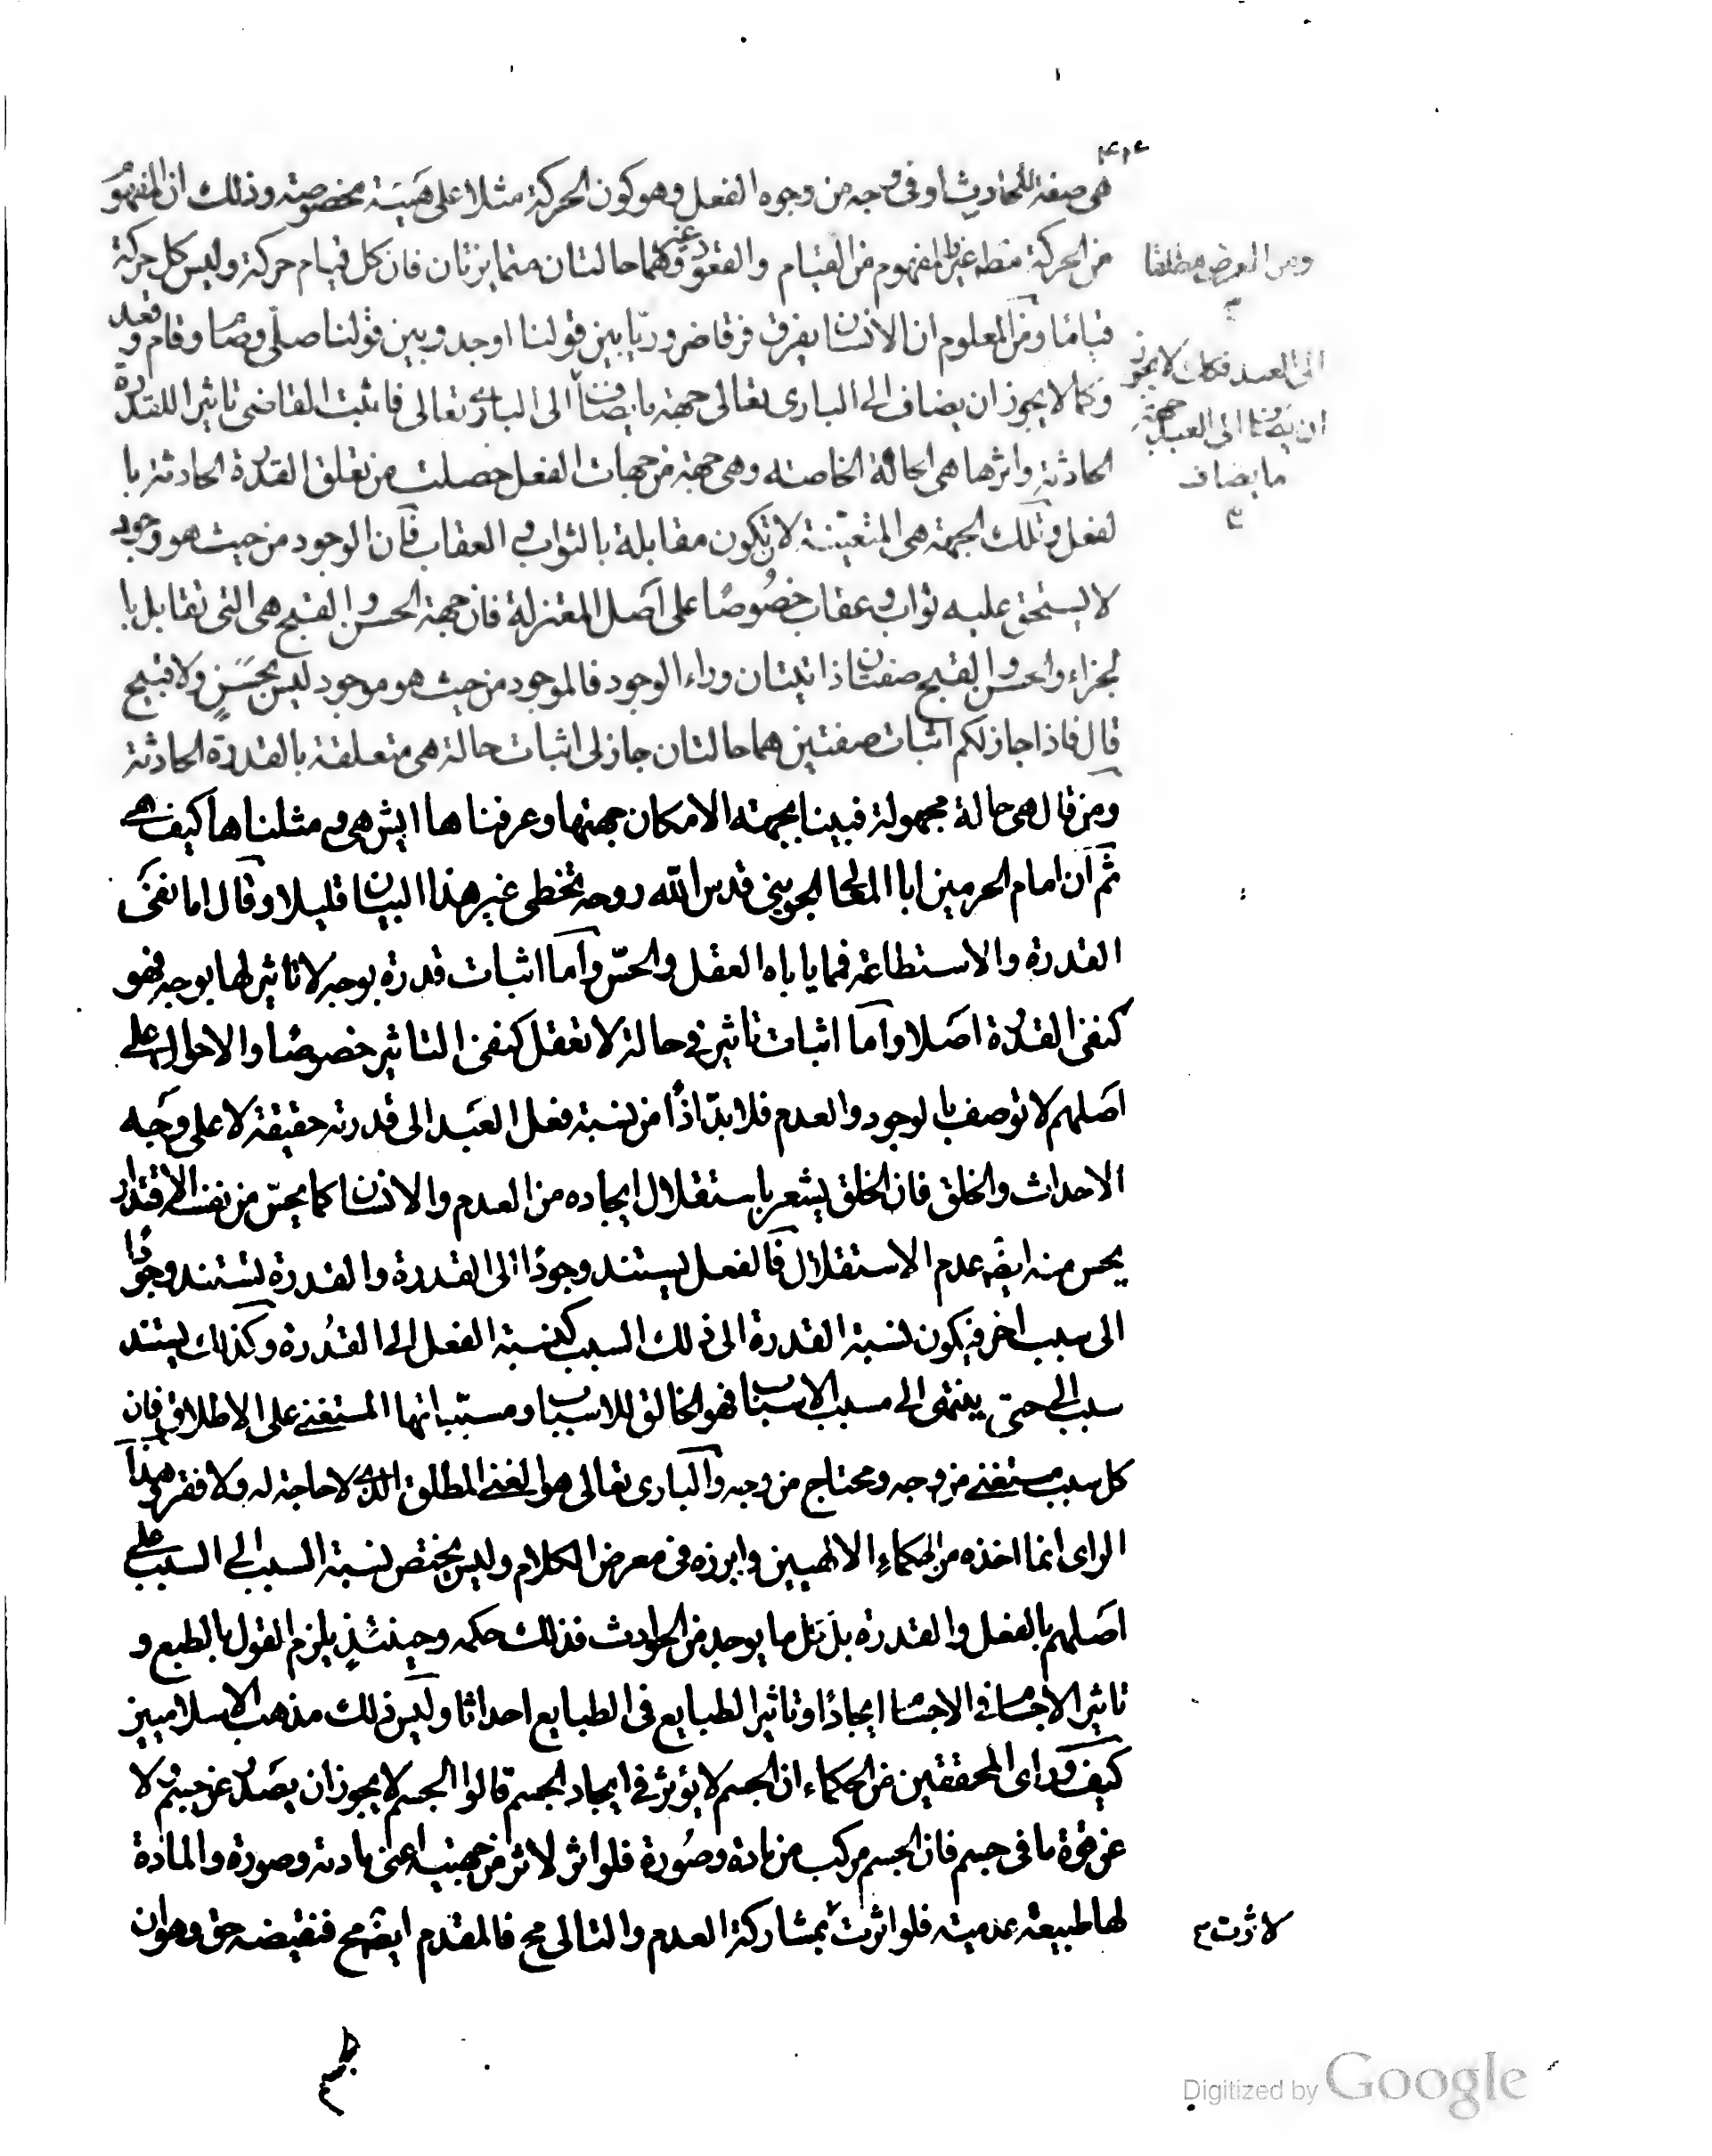 هى صفة للحادث او فى وجه من وجوه الفعل وهو كون الحركة مثلا على هيئة مخصوصة وذلك ان المفهوم
من الحركة مطلقا غير المفهوم من القيام والقعود غير وهما حالتان متمايزتان فان كل قيام حركة وليس كل حركة
ومن العرض مطلقا
قياما ومن المعلوم ان الانسان يفرق فرقا ضروريا بين قولنا اوجد وبين قولنا صلّى وصام وقام وقعد
وكما لا يجوز ان يضاف الى البارى تعالى جهة ما يضاف الى البارى تعالى فاثبت القاضى تاثيرا للقدرة
الى العبد فكذلك لا يجوز
ان يضاف الى العبد جهة
ما يضاف
الحادثة واثرها هى الحالة الخاصة وهى جهة من جهات الفعل حصلت من تعلق القدرة الحادثة با
لفعل وتلك الجهة هى المتعينة لان تكون مقابلة بالثواب والعقاب فان الوجود من حيث هو وجود
لا يستحق عليه ثواب وعقاب خصُوصًا على اصل المعتزلة فان جهة الحسن والقبح هى التى تقابل با
لجزاء والحسن والقبح صفتان ذاتيتان وراء الوجود فالموجود من حيث هو موجود ليس بحَسَنٍ ولا قبيح
قال فاذا جاز لكم اثبات صفتين هما حالتان جاز لى اثبات حالة هى متعلقة بالقدرة الحادثة
ومن قال هى حالة مجهولة فبينا بجهة الامكان جهتها وعرفناها ايش هى ومثلناها كيف هى
ثم ان امام الحرمين ابا المعالى الجوينى قدس الله روحه تخطى عن هذا البيان قليلا وقال اما نفى
القدرة والاستطاعة فمما ياباه العقل والحسّ واما اثبات قدرة بوجه لا تاثير لها بوجه فهو
كنفى القدرة اصلا واما اثبات تاثير فى حالة لا تعقل كنفى التاثير خصوصًا والاحوال على
اصلهم لا توصف بالوجود والعدم فلا بدّ اذًا من نسبة فعل العبد الى قدرته حقيقة لا على وجه
الاحداث والخلق فان الخلق يشعر باستقلال ايجاده من العدم والانسان كما يحسّ من نفسه الاقتدار
يحس منه ايضًا عدم الاستقلال فالفعل يستند وجودًا الى القدرة والقدرة تستند وجودًا
الى سبب اخر فيكون نسبة القدرة الى ذلك السبب كنسبة الفعل الى القدرة وكذلك يستند
سبب الى حتى ينتهى الى مسبب الاسباب فهو الخالق للاسباب ومسبباتها المستغنى على الاطلاق فان
كل سبب مستغنى من وجه ومحتاج من وجه والبارى تعالى هو الغنى المطلق الذى لا حاجة له ولا فقر وهذا
الراى انما اخذه من الحكماء الالهيين وابرزه فى معرض الكلام وليس يختص نسبة السبب الى السبب على
اصلهم بالفعل والقدرة بل كل ما يوجد من الحوادث فذلك حكمه وحينئذٍ يلزم القول بالطبع و
تاثير الاجسام فى الاجسام ايجادًا وتاثير الطبايع فى الطبايع احداثا وليس ذلك مذهب الاسلاميين
كيف وراى المحققين من الحكماء ان الجسم لا يؤثر فى ايجاد الجسم قالوا الجسم لا يجوز ان يصدر عن جسم ولا
عن قوة ما فى جسم فان الجسم مركب من مادة وصُورة فلو اثر لاثر من جهتيه اعنى مادته وصورة والمادة
لها طبيعة عدمية فلو اثرت بمشاركة العدم والتالى مح فالمقدم ايضًا مح فنقيضه حق وهو ان
لاثرت
Digitized by Google